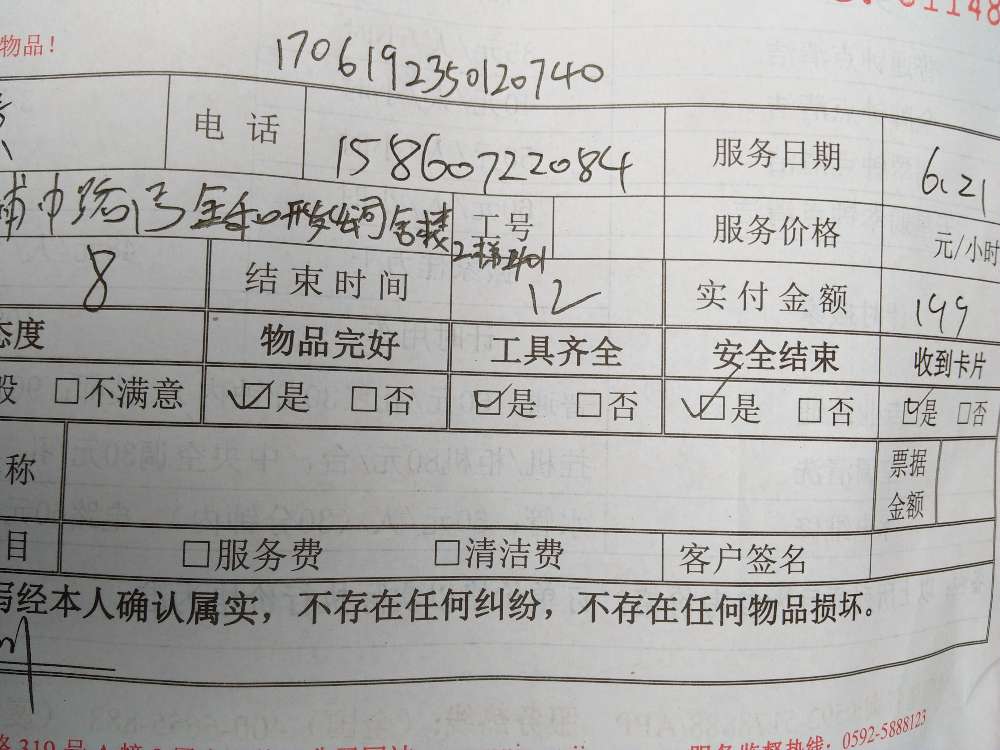 01148
物品！
1706192350120740
电话 15860722084 服务日期 6.21
工号 服务价格 元/小时
8 结束时间 12 实付金额 149
态度 物品完好 工具齐全 安全结束 收到卡片
般 □不满意 ☑是 □否 ☑是 □否 ☑是 □否 ☑是 □否
称 票据金额
目 □服务费 □清洁费 客户签名
写经本人确认属实，不存在任何纠纷，不存在任何物品损坏。
路319号 服务监督热线：0592-5888123